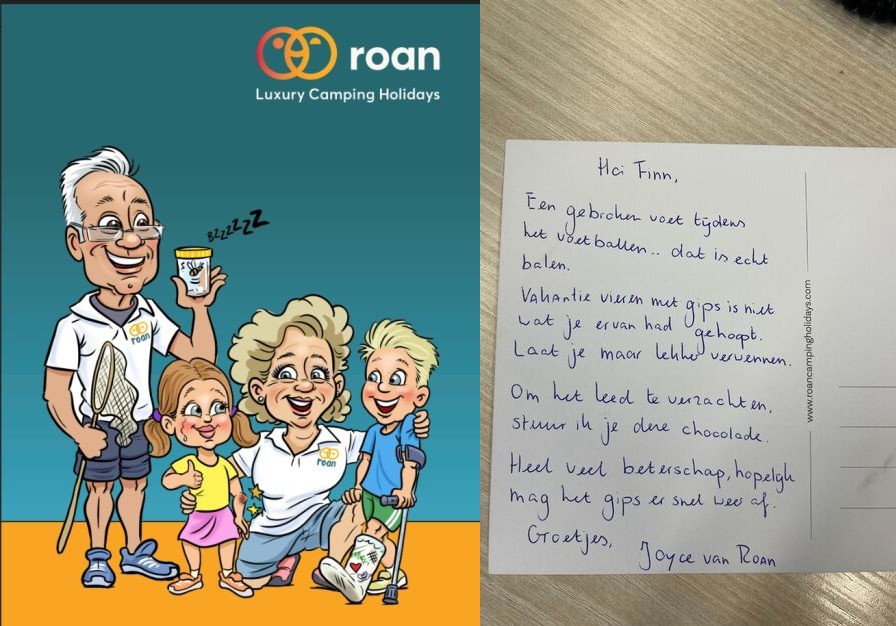 roan
Luxury Camping Holidays
BZZZZZZ
roan
roan
Hoi Finn,
Een gebroken voet tijdens
het voetballen.. dat is echt
balen.
Vakantie vieren met gips is niet
wat je ervan had gehoopt.
Laat je maar lekker verwennen.
Om het leed te verzachten,
stuur ik je deze chocolade.
Heel veel beterschap, hopelijk
mag het gips er snel weer af.
Groetjes,
Joyce van Roan
www.roancampingholidays.com